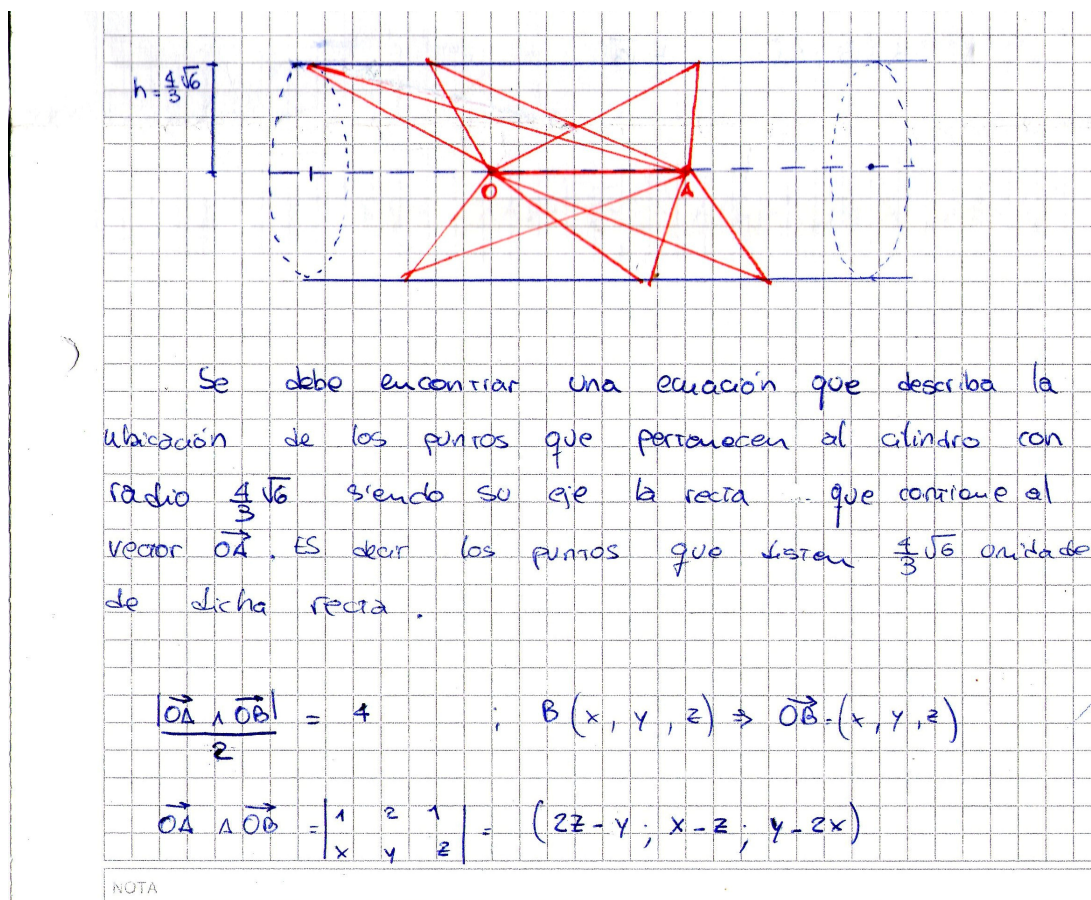 h = 4/3 √6
O A
Se debe encontrar una ecuación que describa la
ubicación de los puntos que pertenecen al cilindro con
radio 4/3 √6 siendo su eje la recta que contiene al
vector OA⃗. ES decir los puntos que disten 4/3 √6 unidade
de dicha recta.
|OA⃗ ∧ OB⃗| / 2 = 4 ; B (x, y, z) ⇒ OB⃗ = (x, y, z)
OA⃗ ∧ OB⃗ = | 1 2 1 | = (2z - y ; x - z ; y - 2x)
| x y z |
NOTA